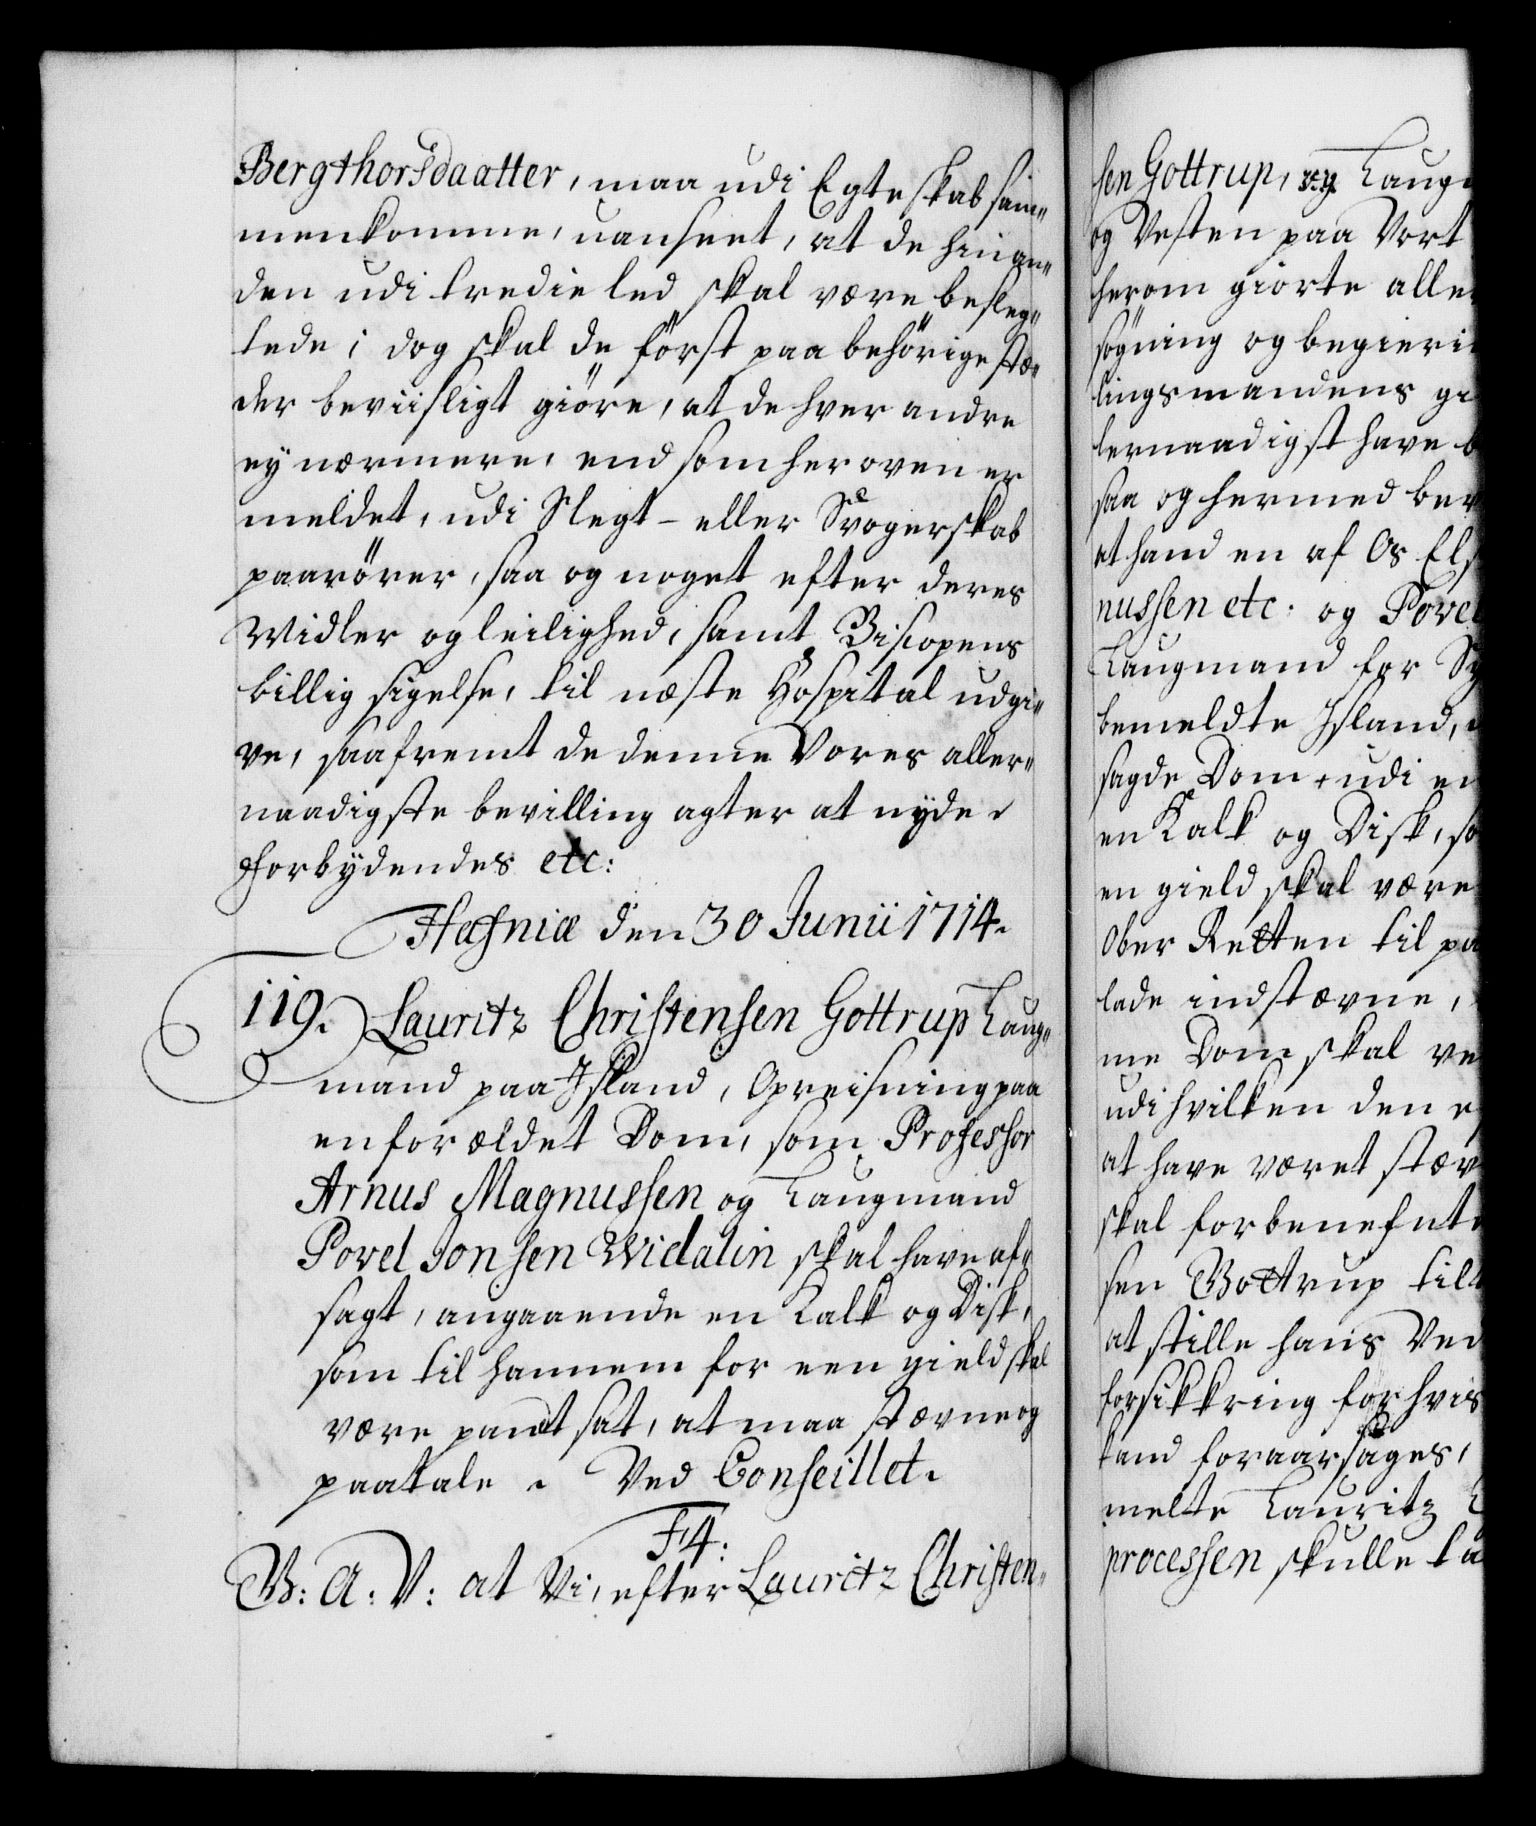 Bergthorsdaatter, maa udi Egteskab sam„
menkomme, uanseet, at de hinan„
den udi tredie led skal være beslæg„
tede; dog skal de först paa behörige stæ„
der beviisligt giöre, at de hver andre
ey nærmere, end som her oven er
meldet, udi Slegt- eller Svogerskab
paarörer, saa og noget efter deres
Midler og leilighed, samt Biscopens
billig sigelse, til næste Hospital udgi„
ve, saafremt de denne Vores aller„
naadigste bevilling agter at nyde.
Forbydendes etc:
Hafniæ den 30 Junii 1714.
119. Lauritz Christensen Gottrup Laug„
mand paa Island, Opreisning paa
en forældet Dom, som Professor
Arnus Magnussen og Laugmand
Povel Jonsen Widalin skal have af„
sagt, angaaende en Kalk og Disk,
som til hannem for een gield skal
være pandt sat, at maa stævne og
paatale. Ved Conseillet.
F4:
G: A: V: at Vi, efter Lauritz Christen„
sen Gottrup, Laug
og Vesten paa Vort
herom giorte aller
søgning og begierin
lingsmandens gi
lernaadigst have b
saa og hermed bev
at hand en af Os Els
nussen etc: og Povel
Laugmand for Sy
bemeldte Island,
sagde Dom udi en
en Kalk og Disk, so
en gield skal være
Ober Retten til pa
lade indstævne,
me Dom skal ve
udi hvilken den e
at have været stæv
skal forbenefnte
sen Gottrup tilt
at stille hans Ved
forsikkring for hvis
kand foraarsages,
melte Lauritz C
processen skulle ta